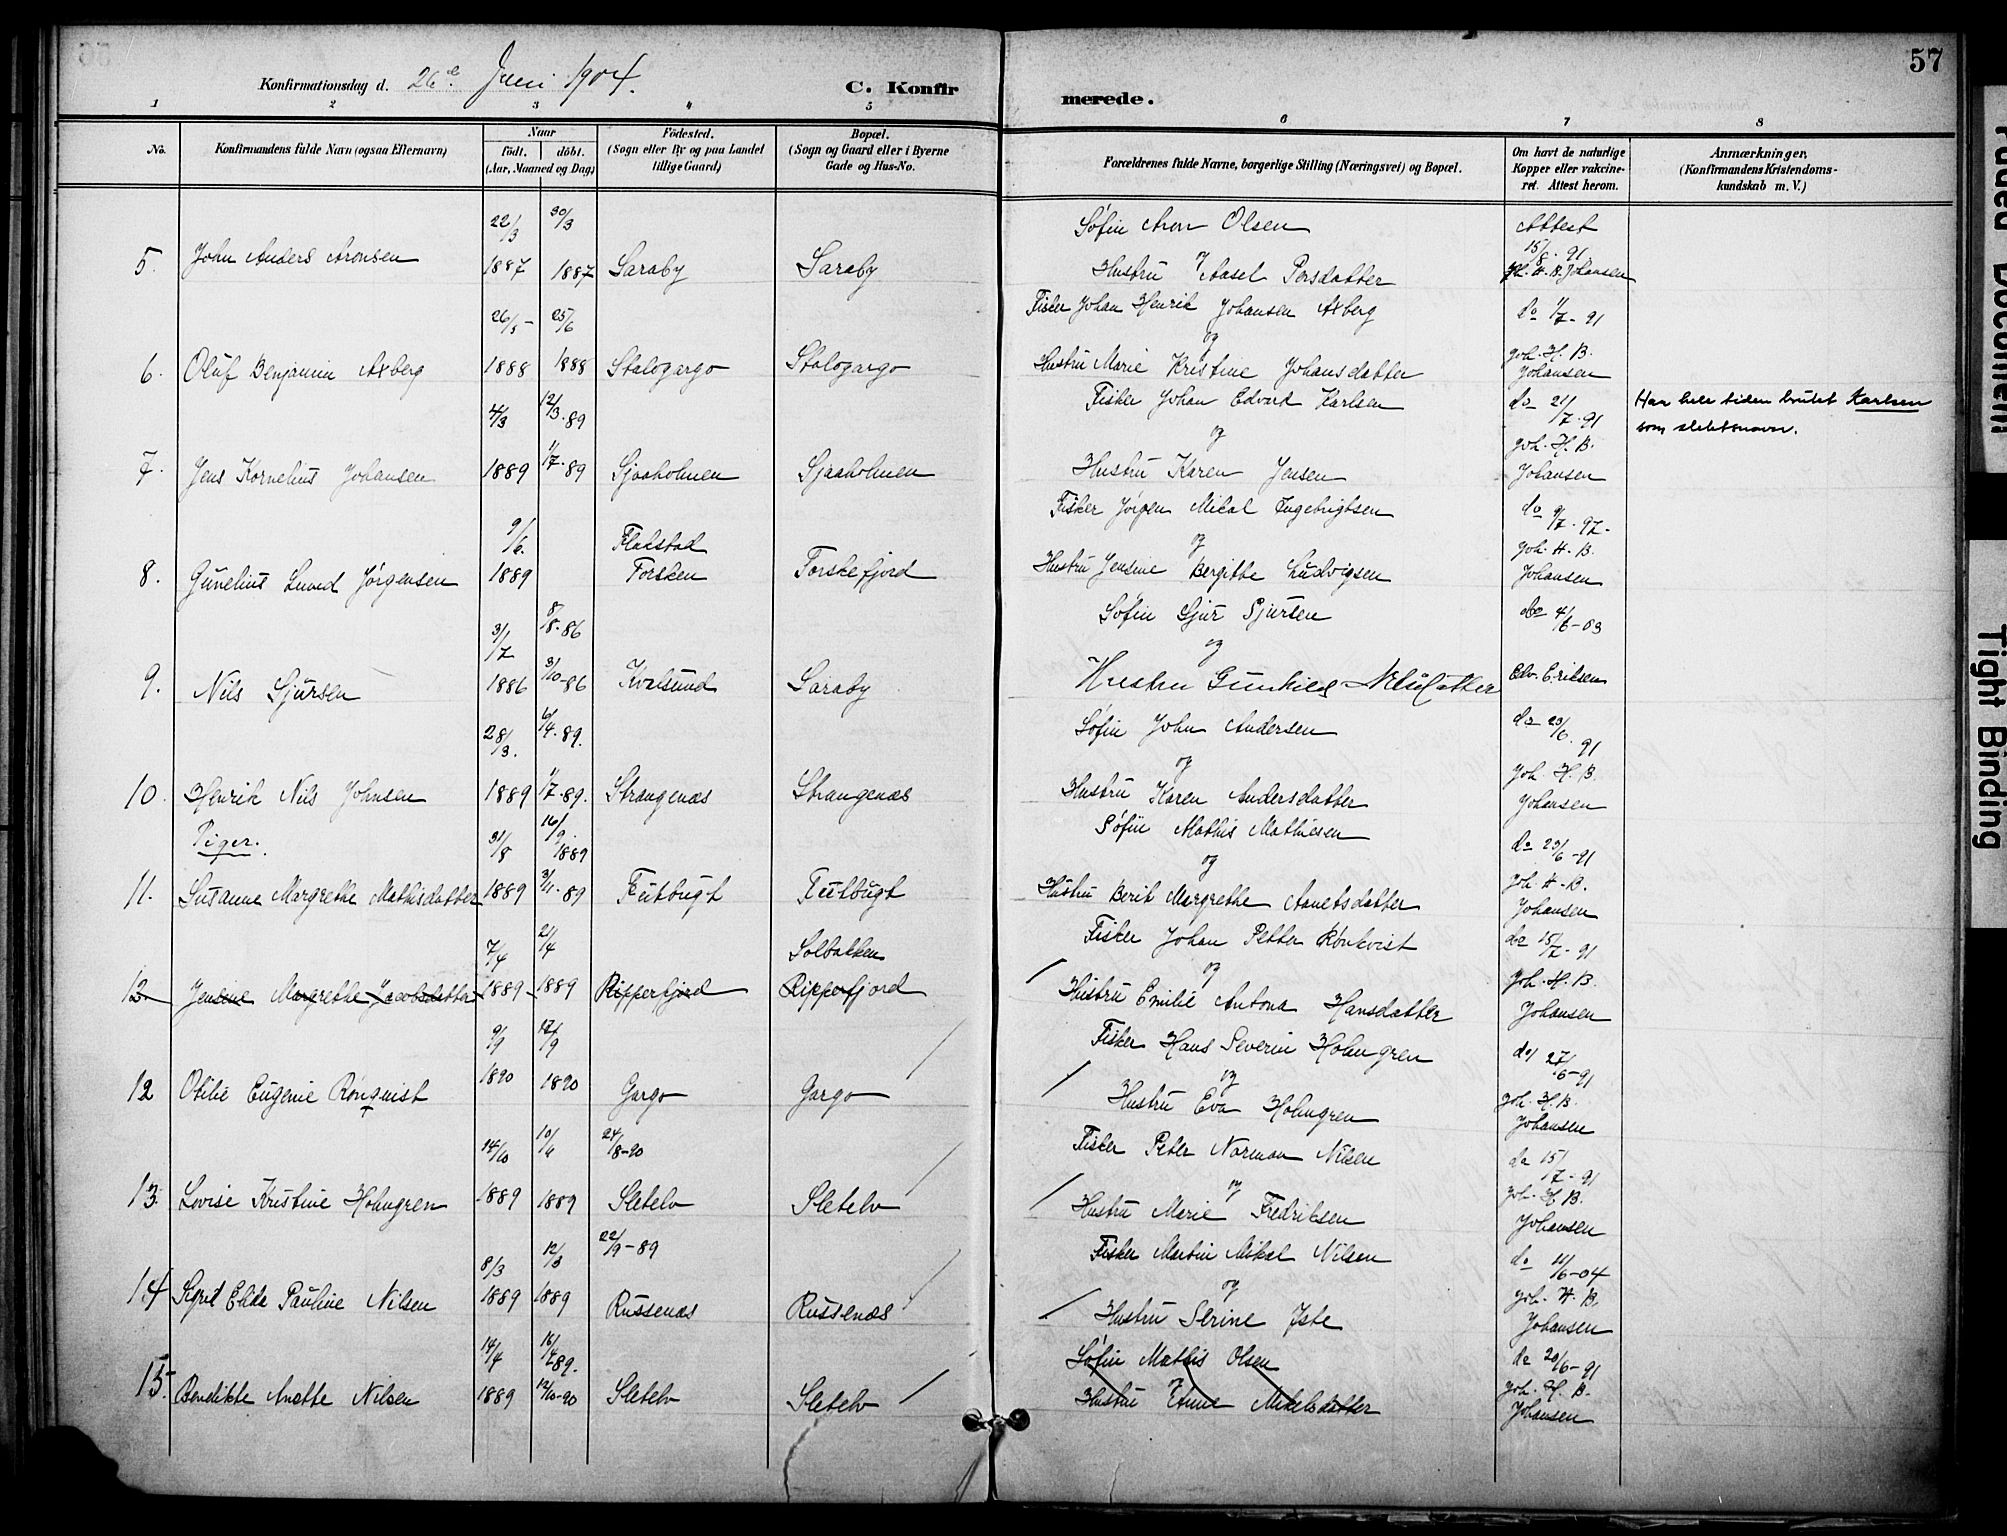 57
Konfirmationsdag d. 26de Juni 1904.
C. Konfirmerede.
1 2 3 4 5 6 7 8
No.
Konfirmandens fulde Navn (ogsaa Efternavn)
Naar
födt. döbt.
(Aar, Maaned og Dag)
Födested.
(Sogn eller By og paa Landet
tillige Gaard)
Bopæl.
(Sogn og Gaard eller i Byerne
Gade og Hus-No.
Forældrenes fulde Navne, borgerlige Stilling (Næringsvei) og Bopæl.
Om havt de naturlige
Kopper eller vakcine-
ret. Attest herom.
Anmærkninger,
(Konfirmandens Kristendoms-
kundskab m. V.)
5. John Anders Aronsen 22/3 1887 30/3 1887 Saraby Saraby
Søfin Aron Olsen
og
Hustru Aasel Persdatter
Attest 15/8-91 H. B. Johansen
6. Oluf Benjamin Axberg 26/5 1888 25/6 1888 Stalogargo Stalogargo
Fisker Johan Henrik Johansen Axberg
og
Hustru Marie Kristine Johansdatter
do 1/7-91 Joh. H. B. Johansen
7. Jens Kornelius Johansen 4/3 1889 12/3-89 1/7-89 Sjaaholmen Sjaaholmen
Fisker Johan Edvard Karlsen
og
Hustru Karen Jensen
do 21/7-91 Joh. H. B. Johansen
Har hele tiden brukt Karlsen
som slektsnavn.
8. Gunelius Lund Jørgensen 9/6. 1889 Flakstad Torsken Torskefjord
Fisker Jørgen Mikal Ingebrigtsen
og
Hustru Jensine Bergitte Ludvigsen
do 9/7-97- Joh. H. B. Johansen
9. Nils Sjursen 31/7 1886 8/8-86 3/10-86 Kvalsund Saraby
Søfin Sjur Sjursen
og
Hustru Gunhild Nilsdatter
do 4/6-03 Edv. Eriksen
10. Henrik Nils Johnsen 28/3. 1889 6/4-89. 1/7-89. Strangenæs Strangenæs
Søfin John Andersen
og
Hustru Karen Andersdatter
do 23/6.91 Joh. H. B. Johansen
Piger.
11. Susanne Margrethe Mathisdatter 31/8 1889 16/9. 1889 3/11-89
Søfin Mathis Mathiesen
og
Hustru Berit Margrethe
do 23/6-91 Joh. H. B. Johansen
12. Jensine Margrethe Jacobsdatter 7/4 1889 21/4 1889 Ripperfjord Solbakken Ripperfjord
Fisker Johan Petter Rønkvist
og
Hustru Emilie Antona Hansdatter
do 15/7-91 Joh. H. B. Johansen
12 Otilie Eugenie Rönquist 9/9 1890 17/9 1890 Gargo Gargo
Fisker Hans Severin Holmgren
og
Hustru Eva Holmgren
do 27/6-91 Joh. H. B. Johansen
13. Lovise Kristine Holmgren 14/10 1889 1889 24/8-90 Sletelv Sletelv
Fisker Peter Norman Nilsen
og
Hustru Marie Fredriksen
do 15/7-91 Joh. H. B. Johansen
14 Sigrid Elida Pauline Nilsen 8/3 1889 12/3 1889 22/9-89 Russenæs Russenæs
Fisker Martin Mikal Nilsen
og
Hustru Serine
do 11/6-04 Joh. H. B. Johansen
15. Bendikte Anette Nilsen 14/4 1889 16/4 89. 12/10-90 Sletelv Sletelv
Søfin Mathis Olsen
og
Hustru Mikelsdatter
do 20/6-91 Joh. H. B. Johansen
Faded Document
Tight Binding